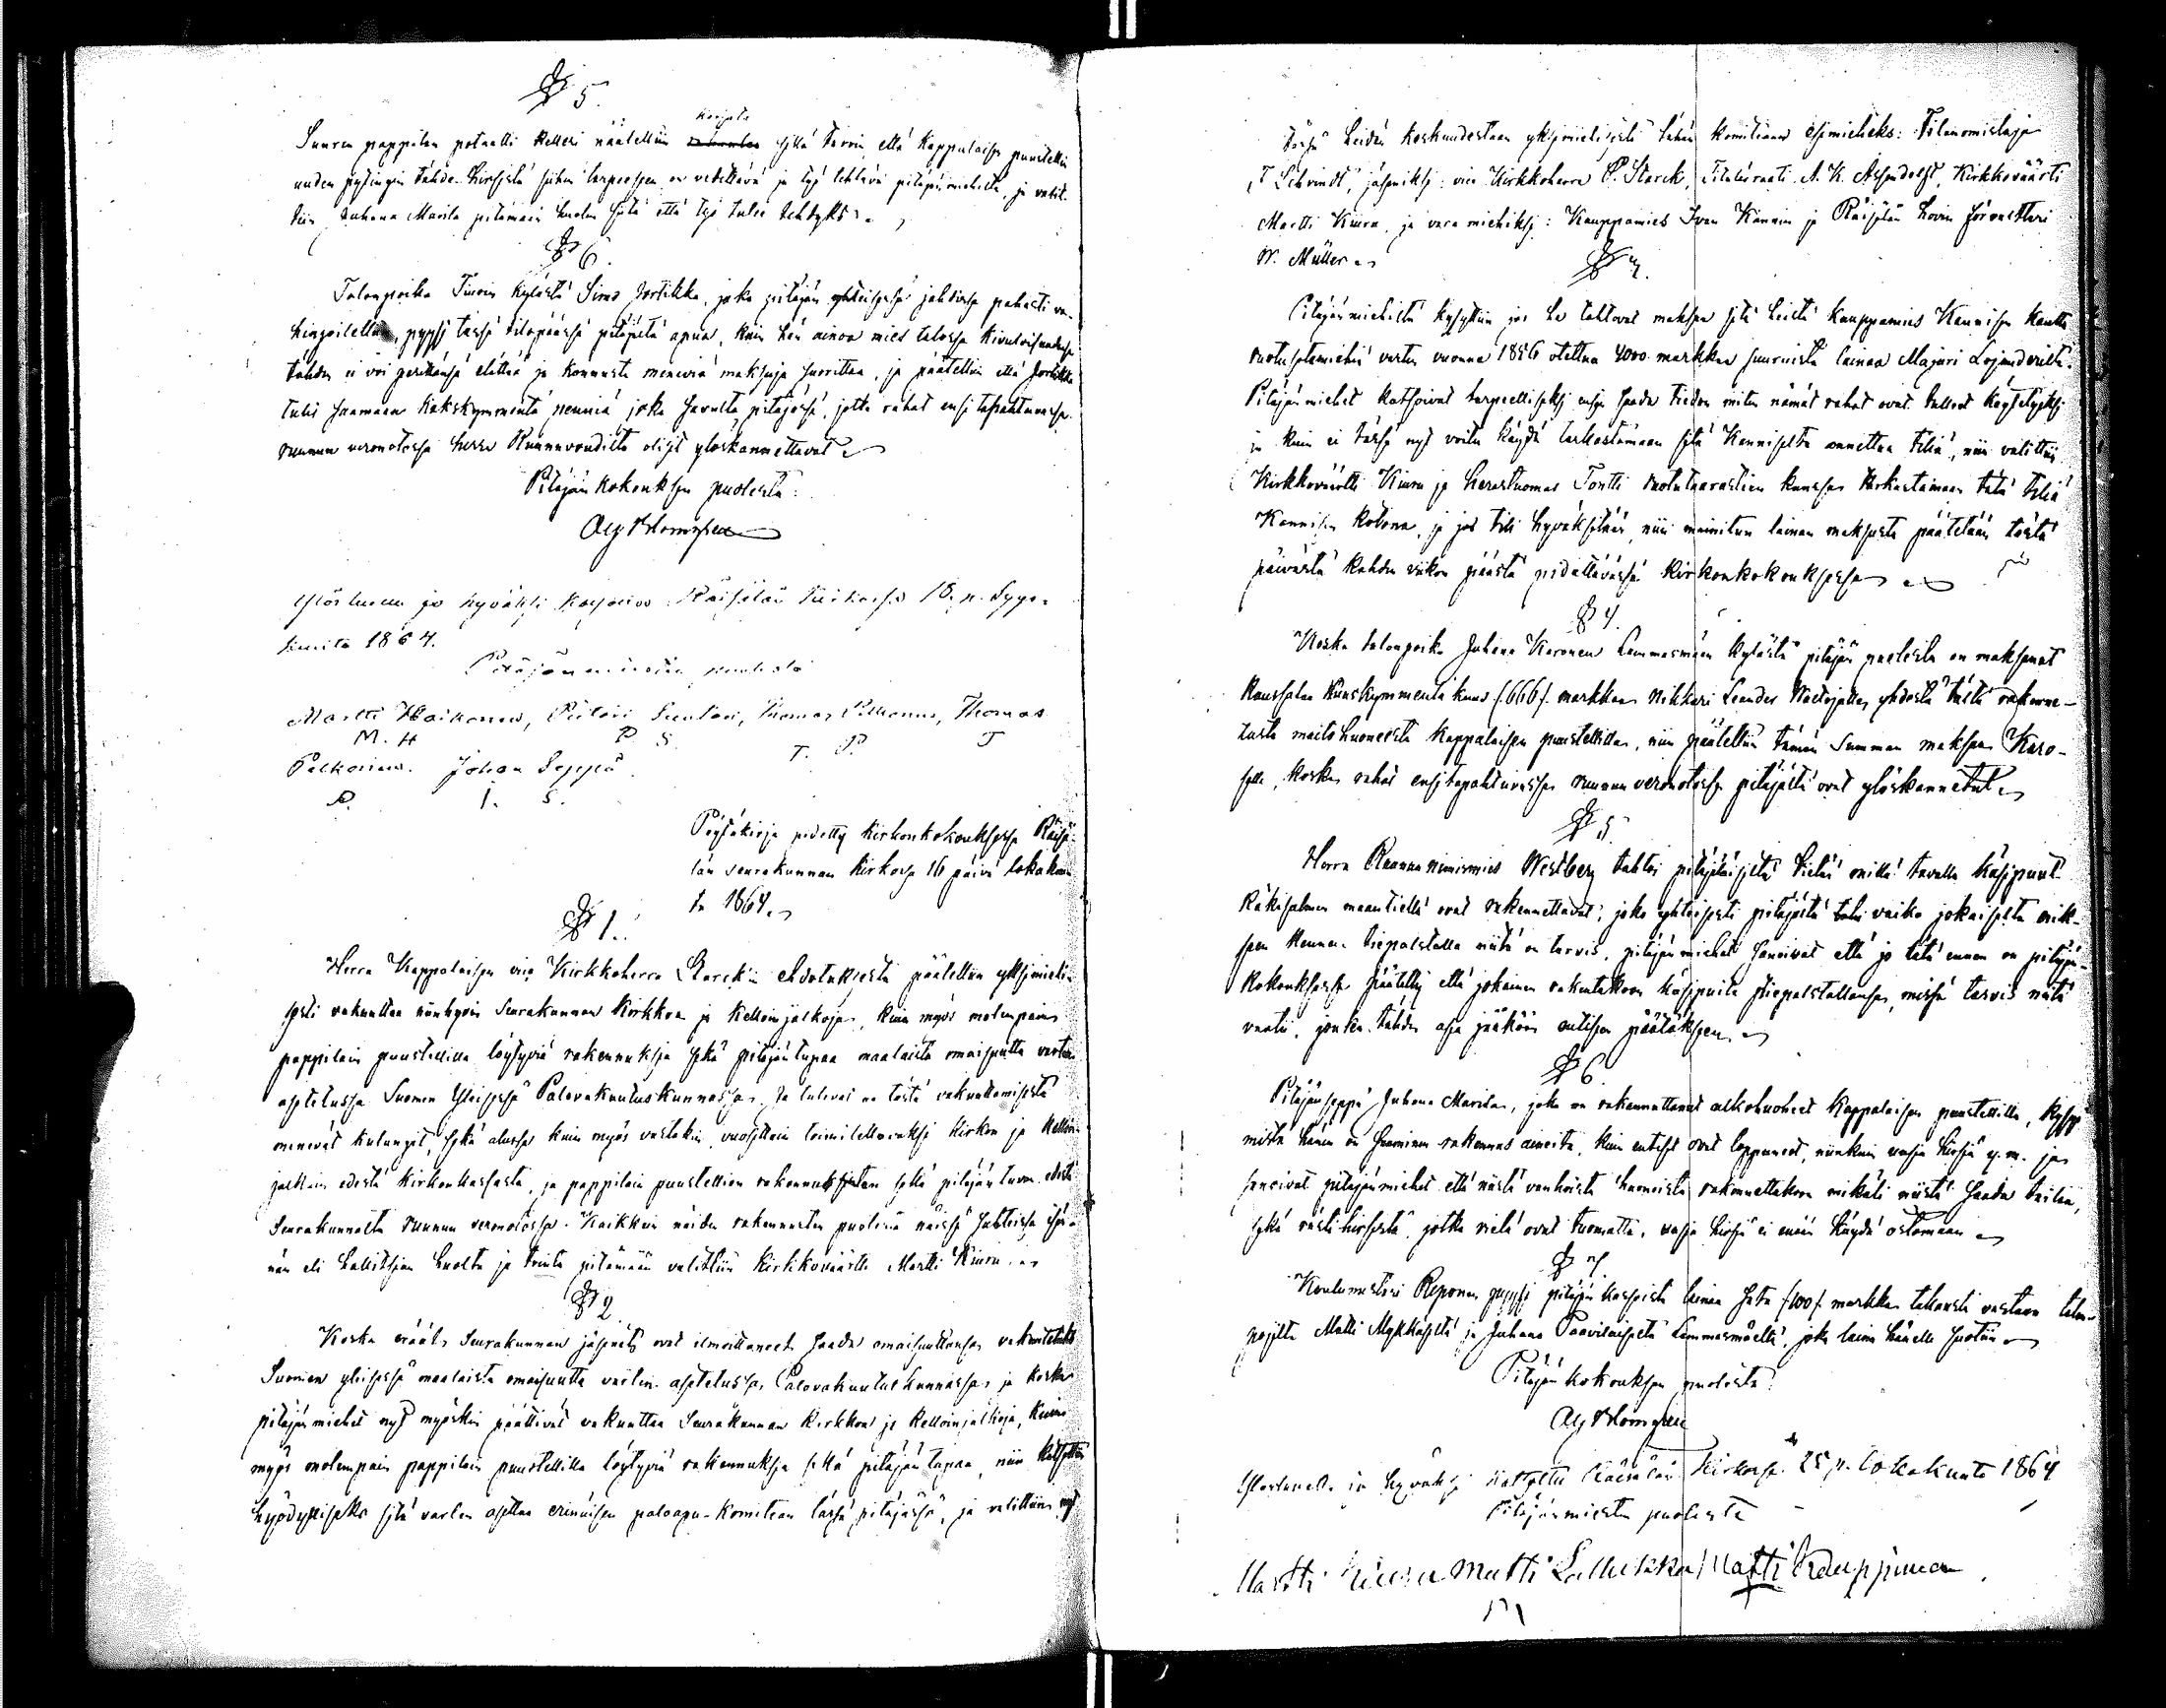 § 5.
Suuren pappilan potaatti kelleri päätettiin korjata sillä tavoin että kappalaisen puustellin
uuden pytingin tähden hirsistä siihen tarpeeseen on vedettävä ja työ tehtävä pitäjänmiehiltä, ja valit-
tiin Juhana Marila pitämään huolen siitä että työ tulee tehdyksi.
§ 6.
Talonpoika Tiurin kylästä Simo Jortikka, joka pitäjän yhteisessä jahdissa pahasti va-
hingoitettiin, pyysi tässä tilapäässä pitäjältä apua, kuin hän ainoa mies talossa kivuloisuudensa
tähden ei voi perettänsä elättää ja kruunusta meneviä maksuja suorittaa, ja päätettiin että Jortikka
tulis saamaan kakskymmentä penniä joka savulta pitäjässä, jotka rahat ensi tapahtuvassa
ruunun veronotossa herra Ruununvoudilta olisit ylöskannettavat.
Pitäjän kokouksen puolesta:
Alex Blomqvist
Ylösluettu ja hyväksi katsottu Räisälän kirkossa 18 p. Syys-
kuuta 1864.
Pitäjänmiesten puolesta
Martti Haikonen, Pietari Suntari, Thomas Pelkonen, Thomas
M. H P S. T. P. T
Pelkonen. Johan Seppä.
P. J. S.
Pöytäkirja pidetty kirkonkokouksessa Räisä-
län seurakunnan kirkossa 16 päivä lokakuu-
ta 1864.
§ 1.
Herra Kappalaisen vice Kirkkoherra Starck'in ehdotuksesta päätettiin yksimieli-
sesti vakuuttaa niinhyvin Seurakunnan Kirkkoa ja Kelloinjalkoja, kuin myös molempain
pappilain puustellilla löytyviä rakennuksia sekä pitäjäntupaa maalaista omaisuutta varten
asetetussa Suomen Yleisessä Palovakuutuskunnassa. Ja tulevat ne tästä vakuuttamisesta
menevät kulungit, sekä alussa kuin myös vastakin, vuosittain toimitettavaksi kirkon ja kelloin-
jalkain edestä kirkonkassasta, ja pappilain puustellien rakennuksistan sekä pitäjäntuvan edestä
Seurakunnalta ruunun veronotossa. Kaikkein näiden rakennusten puolina näissä suhteissa isän-
nän eli hallitsian huolta ja toimia pitämään valittiin Kirkkovääriti Martti Kiuru.
§ 2.
Koska eräät Seurakunnan jäsenet ovat ilmoittaneet saada omaisuuttansa vakuutetuksi
Suomen yleisessä maalaista omaisuutta varten asetetussa Palovakuutuskunnassa ja koska
pitäjänmiehet nyt myöskin päättivät vakuuttaa Seurakunnan Kirkkoa ja Kelloinjalkoja, kuin
myös molempain pappilain puustellilla löytyviä rakennuksia sekä pitäjäntupaa, niin katsottiin
hyödylliseks sitä varten asettaa erinäisen paloapu-komitean tässä pitäjässä, ja valittiin nyt
tässä heidän keskuudestaan yksimielisesti tähän komiteaan esimieheks: Tilanomistaja
T. Schvindt, jäseniksi: vice Kirkkoherra P. Starck, Titulärraati A. K. Ahsendorff, Kirkkovääriti
Martti Kiuru, ja vara miehiksi: Kauppamies Ivan Kannin ja Räisälän hovin förvaltari
W. Müller.
§ 3.
Pitäjänmiehistä kysyttiin jos he tahtovat maksaa sitä heistä kauppamies Kannisen kautta
ruotusotamiehiä varten vuonna 1856 otettua 4000 markkaa suuruista lainaa Majuri Lojanderilta.
Pitäjänmiehet katsoivat tarpeelliseksi ensin saada tiedon miten nämät rahat ovat tulleet käytetyksi
ja kuin ei tässä nyt voitu käydä tarkastamaan sitä Kanniselta annettua tiliä, niin valittiin
Kirkkovääriti Kiuru ja herastuomar Tontti ruotutaarastien kanssa tarkastamaan tätä tiliä
Kannisen kotona, ja jos tili hyväksitään, niin mainitun lainan maksusta päätetään tästä
päivästä kahden viikon päästä pidettävässä kirkonkokouksessa.
§ 4.
Koska talonpoika Juhana Karonen Lammasmäen kylästä pitäjän puolesta on maksanut
kuussataa kuuskymmentä kuus /:666:/ markkaa nikkari Leander Nooksjalle, yhdestä tästä rakenne-
tusta maitohuoneesta kappalaisen puustellilla, niin päätettiin tämän summan maksaa Karo-
selle, koska rahat ensi tapahtuvassa ruunun veronotossa pitäjältä ovat ylöskannetut.
§ 5.
Herra Ruunun nimismies Westberg tahtoi pitäjäläisiltä tietää millä tavalla käsipuut
Käkisalmen maantiellä ovat rakennettavat; joko yhteisesti pitäjältä vaiko jokaiselta mik-
sen kunnan tiepalstalla niitä on tarvis, pitäjänmiehet sanoivat että jo tätä ennen on pitäjän-
kokouksessa päätetty että jokainen rakentakoon käsipuita tiepalstallansa, missä tarvis niitä
vaatii, jonka tähden asia jääköön entiseen päätökseen.
§ 6.
Pitäjänseppä Juhana Marila, joka on rakennuttanut alkohuoneet kappalaisen puustellilla, kysyi
mista hänen on saaminen rakennus aineita, kuin entiset ovat loppuneet, niinkuin vasja hirsiä y.m. ja
sanoivat pitäjänmiehet että näistä vanhoista huoneista rakennettakoon mikäli niistä saada taitaa,
sekä rästihirsistä, jotka vielä ovat tuomatta, vasja hirsiä ei enään käydä ostamaan.
§ 7.
Koulumestari Reponen pyysi pitäjän kassasta lainaa sata /:100:/ markkaa takausta vastaan talon-
pojilta Matti Mykkäseltä ja Juhana Paavilaiselta Lammasmäeltä, joka laina hänelle suotiin.
Pitäjän kokouksen puolesta:
Alex Blomqvist
Ylösluettu ja hyväksi katsottu Räisälän Kirkossa 25 p. Lokakuuta 1864
Pitäjänmiesten puolesta
Martti Kiuru Matti Lallukka Matti Kauppinen